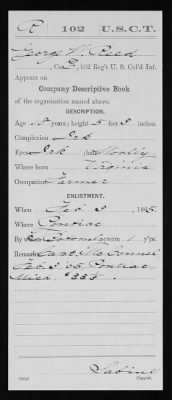 R 102 U.S.C.T.
George W. Reed
, Co. B, 102 Reg't U. S. Col'd Inf.
Appears on
Company Descriptive Book
of the organization named above.
DESCRIPTION.
Age 18 years; height 5 feet 3 inches.
Complexion Drk
Eyes Drk ; hair Woolly
Where born Virginia
Occupation Farmer
ENLISTMENT.
When Feb 3, 1865.
Where Pontiac
By whom term 1 y'rs.
Remarks: Capt. McConnel
Feb. 3. 65 Pontiac,
Mich. $33⅓.
Sabine
Copyist.